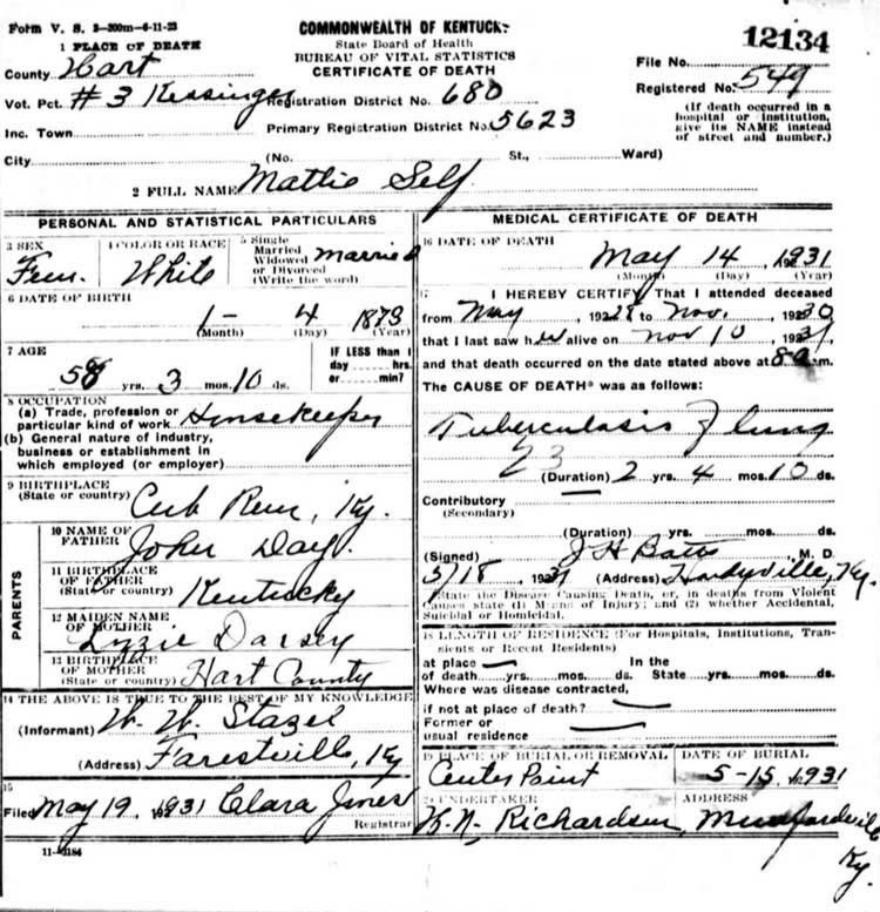 Form V. S. 2-300m-6-11-23
COMMONWEALTH OF KENTUCKY
State Board of Health
BUREAU OF VITAL STATISTICS
CERTIFICATE OF DEATH
12134
1 PLACE OF DEATH
County Hart
File No.
Registered No. 549
Vot. Pct. # 3 Kessinger Registration District No. 680
(If death occurred in a hospital or institution, give its NAME instead of street and number.)
Inc. Town Primary Registration District No. 5623
City (No. St., Ward)
2 FULL NAME Mattie Self
PERSONAL AND STATISTICAL PARTICULARS
3 SEX Fem.
4 COLOR OR RACE White
5 Single Married Widowed or Divorced (Write the word) Married
6 DATE OF BIRTH
1- 4 1873
(Month) (Day) (Year)
7 AGE
58 yrs. 3 mos. 10 ds.
IF LESS than 1 day hrs. or min?
8 OCCUPATION
(a) Trade, profession or particular kind of work Housekeeper
(b) General nature of industry, business or establishment in which employed (or employer)
9 BIRTHPLACE
(State or country) Cub Run, Ky.
PARENTS
10 NAME OF FATHER John Day.
11 BIRTHPLACE OF FATHER (State or country) Kentucky
12 MAIDEN NAME OF MOTHER Lyzzie Darsey
13 BIRTHPLACE OF MOTHER (State or country) Hart County
14 THE ABOVE IS TRUE TO THE BEST OF MY KNOWLEDGE
(Informant) W. W.
(Address) Ky
15
Filed May 19, 1931 Clara Jones
Registrar
11-3184
MEDICAL CERTIFICATE OF DEATH
16 DATE OF DEATH
May 14, 1931
(Month) (Day) (Year)
17 I HEREBY CERTIFY, That I attended deceased
from May, 1928 to Nov., 1930
that I last saw her alive on Nov 10,
and that death occurred on the date stated above at 8 a.m.
The CAUSE OF DEATH* was as follows:
Tuberculosis of lung
23
(Duration) 2 yrs. 4 mos. 10 ds.
Contributory
(Secondary)
(Duration) yrs. mos. ds.
(Signed) J H Batts, M. D.
5/18, 1931 (Address) Hardyville, Ky.
*State the Disease Causing Death, or, in deaths from Violent Causes state (1) Means of Injury; and (2) whether Accidental, Suicidal or Homicidal.
18 LENGTH OF RESIDENCE (For Hospitals, Institutions, Transients or Recent Residents)
at place In the
of death yrs. mos. ds. State yrs. mos. ds.
Where was disease contracted,
if not at place of death?
Former or
usual residence
19 PLACE OF BURIAL OR REMOVAL
Center Point
DATE OF BURIAL
5-15, 1931
20 UNDERTAKER
K. N. Richardson,
ADDRESS
Munfordville Ky.